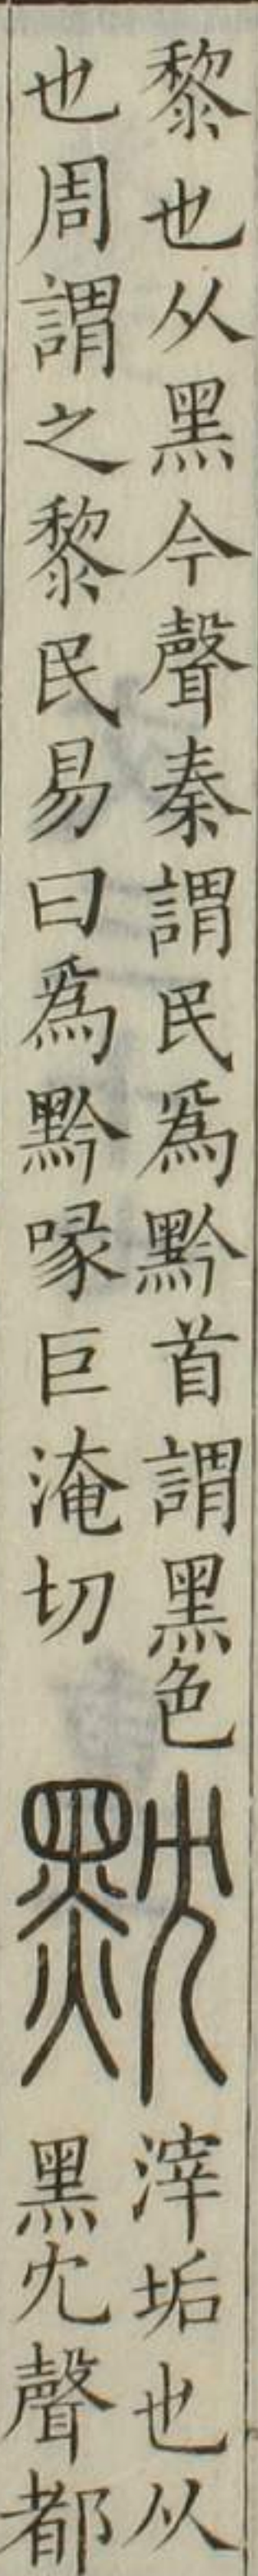 黎也从黑今聲秦謂民爲黔首謂黑色
也周謂之黎民易曰爲黔喙巨淹切
黕
滓垢也从
黑冘聲都